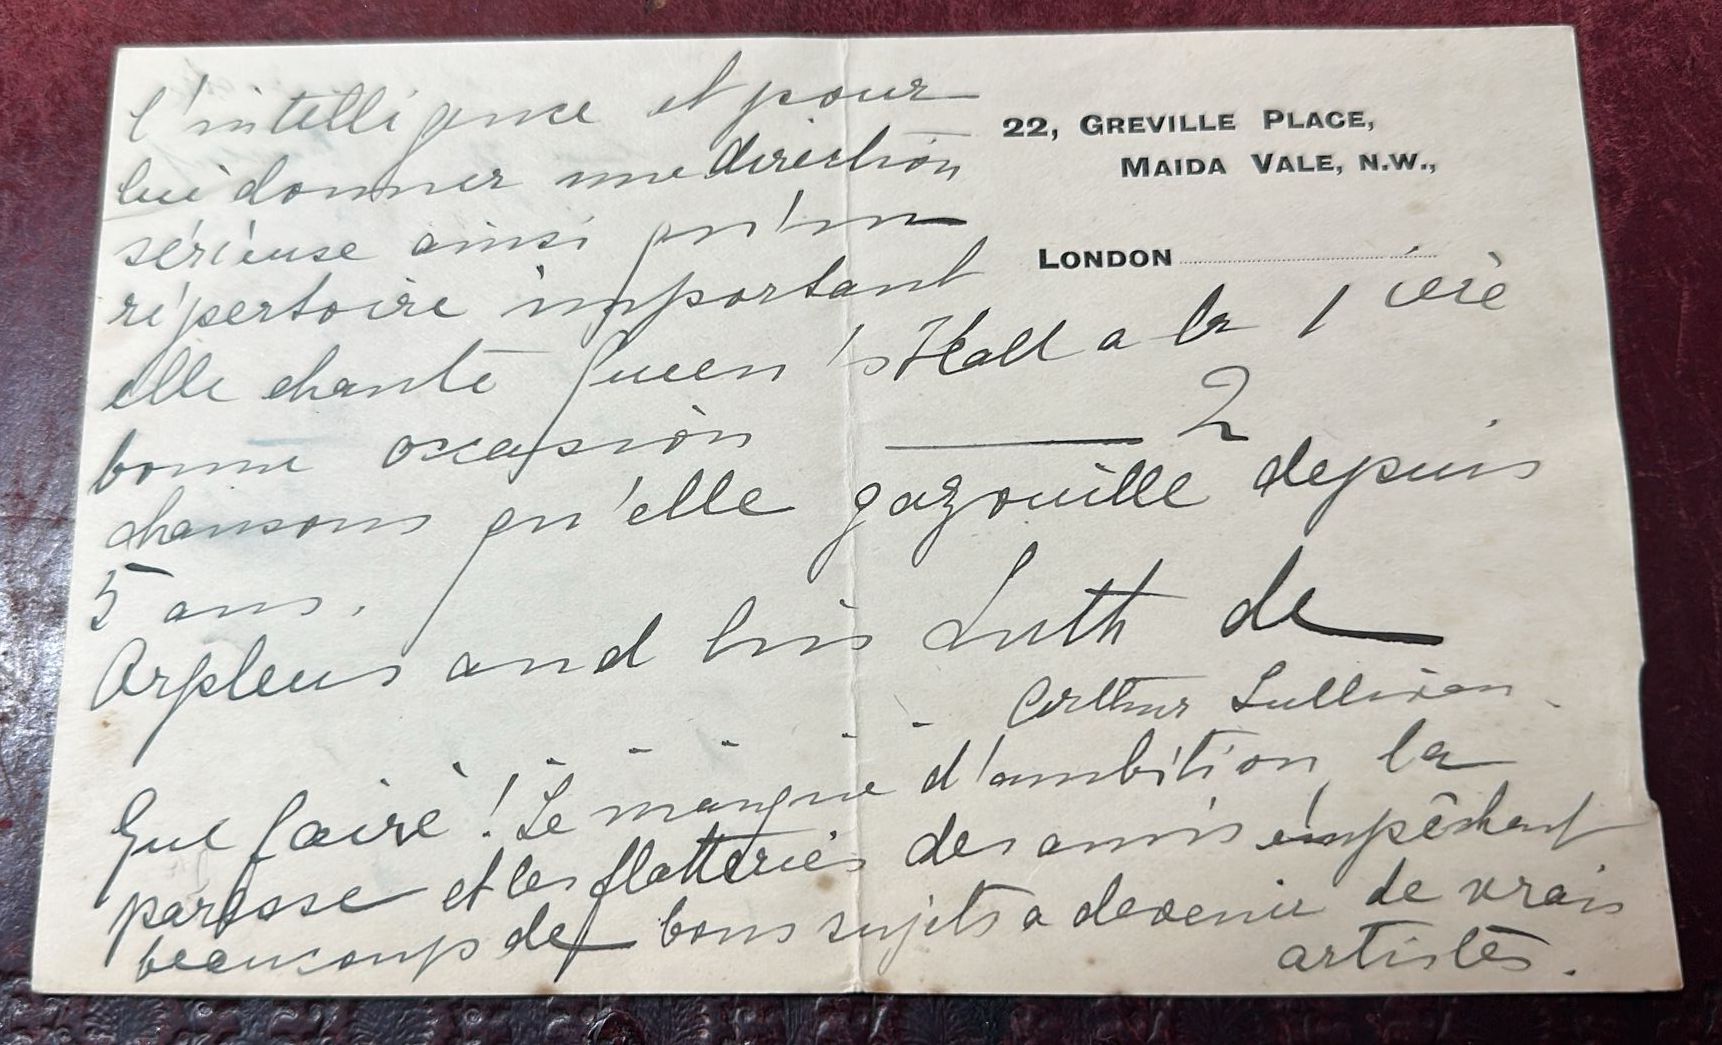 22, GREVILLE PLACE,
MAIDA VALE, N.W.,
LONDON
l'intelligence et pour
lui donner une direction
sérieuse ainsi qu'un
répertoire important
elle chante Queen's Hall a la 1 ière
bonne occasion — 2
chansons qu'elle gazouille depuis
5 ans.
Orpheus and his Luth de
Arthur Sullivan.
Que faire! Le manque d'ambition la
paresse et les flatteries des amis empêchent
beaucoup de bons sujets a devenir de vrais
artistes.